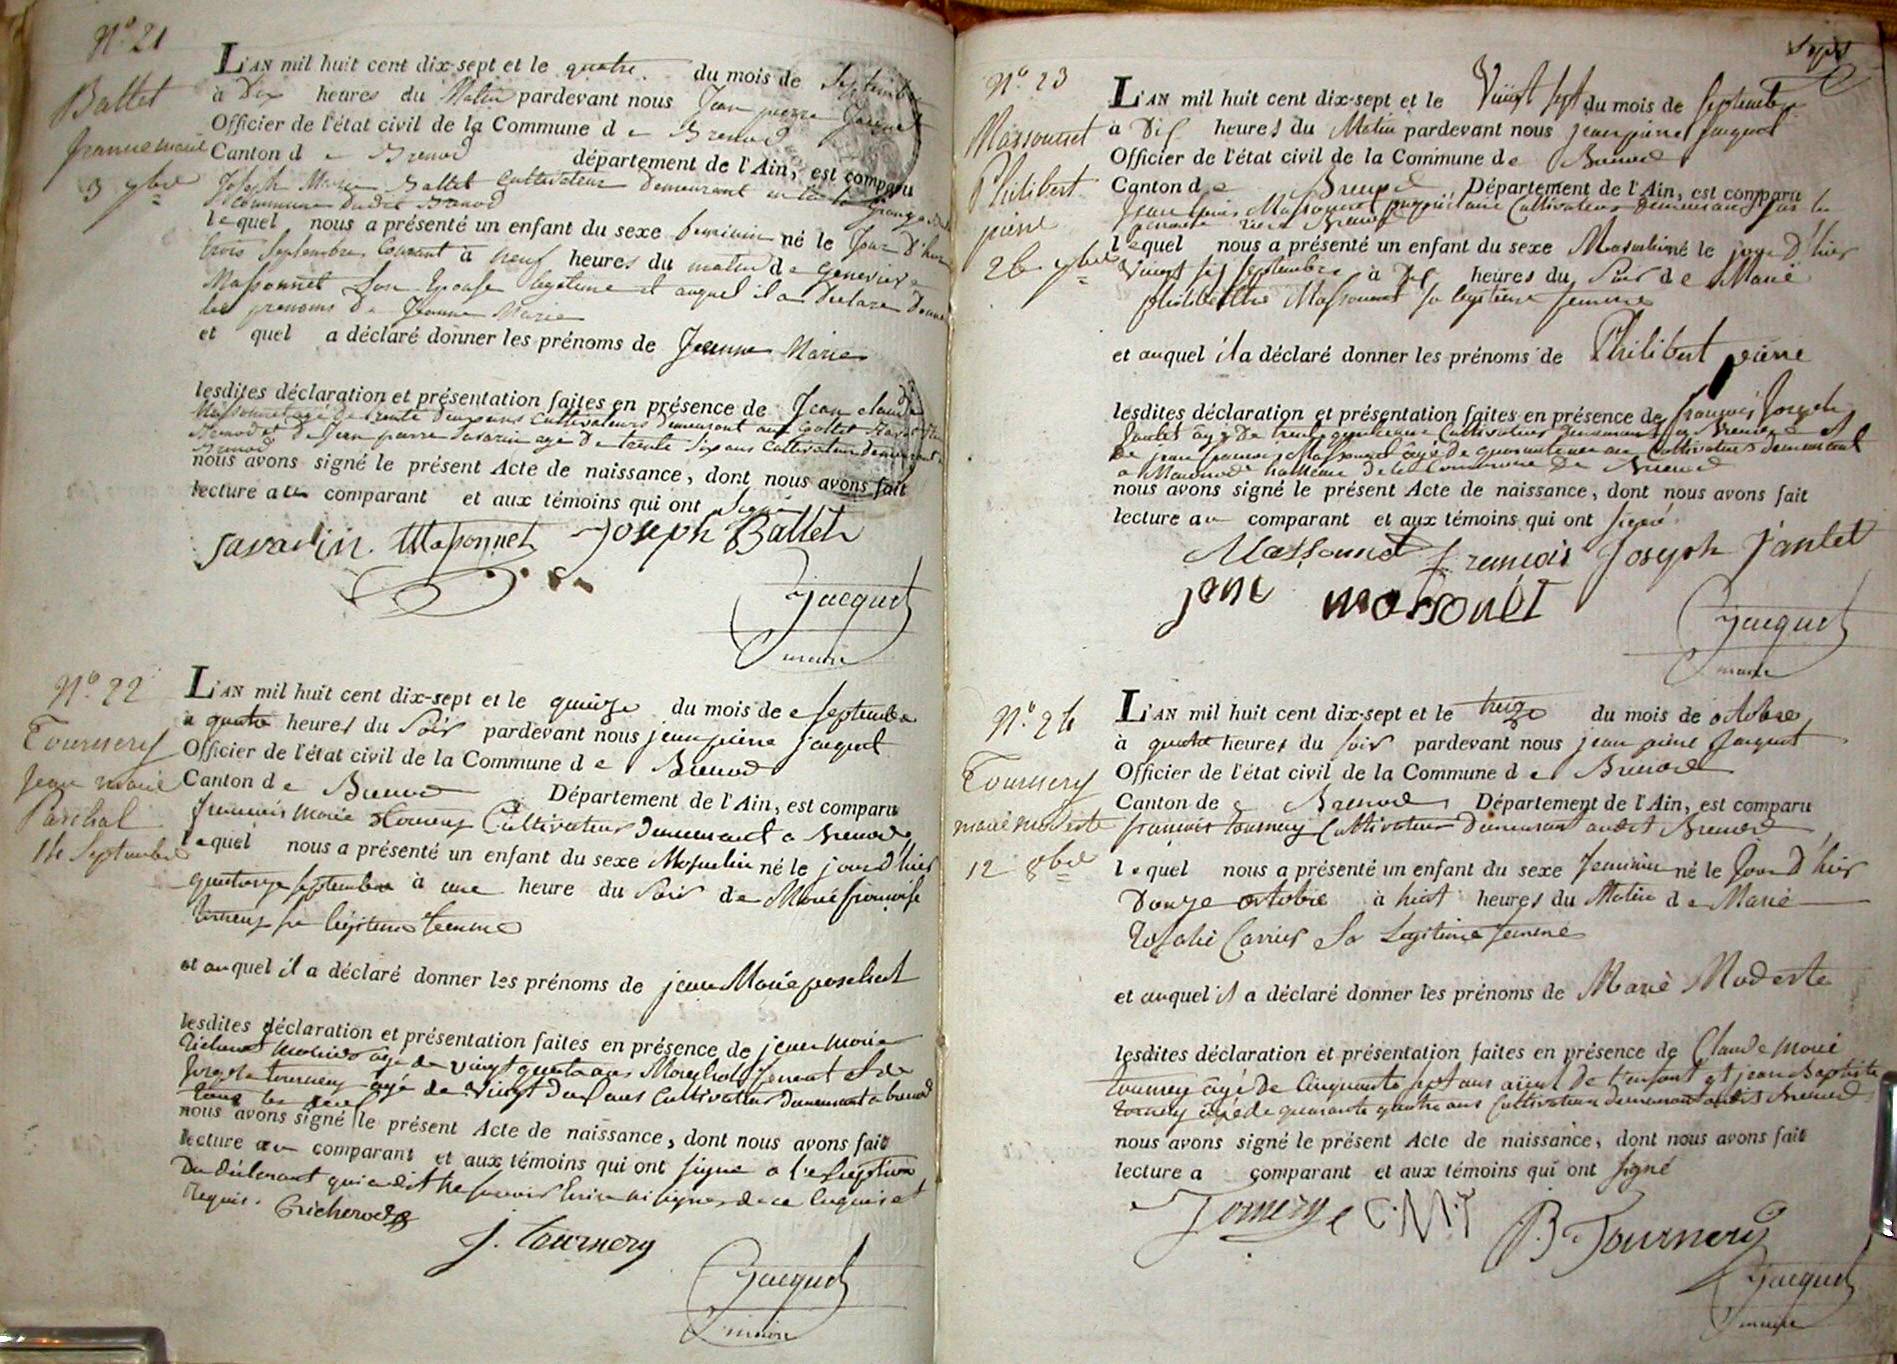 N.º 21
Ballet
Jeanne marie
3 7bre
L'AN mil huit cent dix-sept et le quatre du mois de Septembre
à Dix heures du Matin pardevant nous Jean pierre Jacquet
Officier de l'état civil de la Commune d e Brenod
Canton d e Brenod département de l'Ain, est comparu
Joseph Marie Ballet Cultivateur Demeurant
Commune Dudit Brenod
lequel nous a présenté un enfant du sexe feminin né le Jour D'hier
trois Septembre Courant à neuf heures du matin d e Genevieve
Massonnet Son Epouse legitime et auquel il a Declare Donner
les prenoms De Jeanne Marie
et quel a déclaré donner les prénoms de Jeanne Marie
lesdites déclaration et présentation faites en présence de Jean claude
Massonnet agé de trente Cultivateurs Demeurant
Brenod et De Jean pierre Savarin agé De trente Six ans Cultivateur Demeurant a
Brenod
nous avons signé le présent Acte de naissance, dont nous avons fait
lecture a u comparant et aux témoins qui ont Signé
savarin Massonnet Joseph Ballet
Jacquet
maire
N.º 22
Tournery
Jean marie
Paschal
14 Septembre
L'AN mil huit cent dix-sept et le quinze du mois de Septembre
à quatre heures du Soir pardevant nous jean pierre jacquet
Officier de l'état civil de la Commune d e Brenod
Canton d e Brenod Département de l'Ain, est comparu
francois Marie tournery Cultivateur demeurant a Brenod
lequel nous a présenté un enfant du sexe Masculin né le jour d'hier
quatorze septembre à une heure du Soir de Marie françoise
tornery sa légitime femme
et auquel il a déclaré donner les prénoms de jean Marie paschal
lesdites déclaration et présentation faites en présence de jean Marie
agé de vingt quatre ans Marechal ferrant et de
joseph tournery agé de Vingt ans Cultivateur demeurant a brenod
tous les deux
nous avons signé le présent Acte de naissance, dont nous avons fait
lecture au comparant et aux témoins qui ont signé a l'exseption
Du déclarant qui a dit ne savoir Ecrire ni signer de ce enquis et
Requis.
J. tournery
Jacquet
maire
Sept
N.º 23
Massonnet
Philibert
pierre
26 7bre
L'AN mil huit cent dix-sept et le Vingt sept du mois de septembre
à Dix heures du Matin pardevant nous jean pierre jacquet
Officier de l'état civil de la Commune d e Brenod
Canton d e Brenod Département de l'Ain, est comparu
Jean louis Massonnet propriétaire Cultivateur demeurant
lequel nous a présenté un enfant du sexe Masculin né le jour D'hier
Vingt six septembre à Dix heures du Soir d e Marie
philiberthe Massonnet sa legitime femme
et auquel il a déclaré donner les prénoms de Philibert pierre
lesdites déclaration et présentation faites en présence de françois Joseph
Jantet âgé De trente Cultivateur demeurant a Brenod et
De jean francois Massonnet âgé de quarante Cultivateur demeurant
a hameau De la Commune De Brenod
nous avons signé le présent Acte de naissance, dont nous avons fait
lecture au comparant et aux témoins qui ont signé
Massonnet françois Joseph Jantet
massonet
Jacquet
maire
N.º 24
Tournery
marie modeste
12 8bre
L'AN mil huit cent dix-sept et le treize du mois de octobre
à quatre heures du soir pardevant nous jean pierre Jacquet
Officier de l'état civil de la Commune d e Brenod
Canton de Brenod Département de l'Ain, est comparu
françois tournery Cultivateur Demeurant audit Brenod
lequel nous a présenté un enfant du sexe feminin né le Jour D'hier
Douze octobre à huit heures du Matin d e Marie
Rosalie Carrier Sa Legitime femme
et auquel il a déclaré donner les prénoms de Marie Modeste
lesdites déclaration et présentation faites en présence de Claude Marie
tournery âgé De Cinquante sept ans aïeul De l'enfant et jean Baptiste
tornery agé de quarante quatre ans Cultivateur demeurant audit Brenod
nous avons signé le présent Acte de naissance, dont nous avons fait
lecture a comparant et aux témoins qui ont signé
Tornery C.M.T
B Tournery
Jacquet
maire